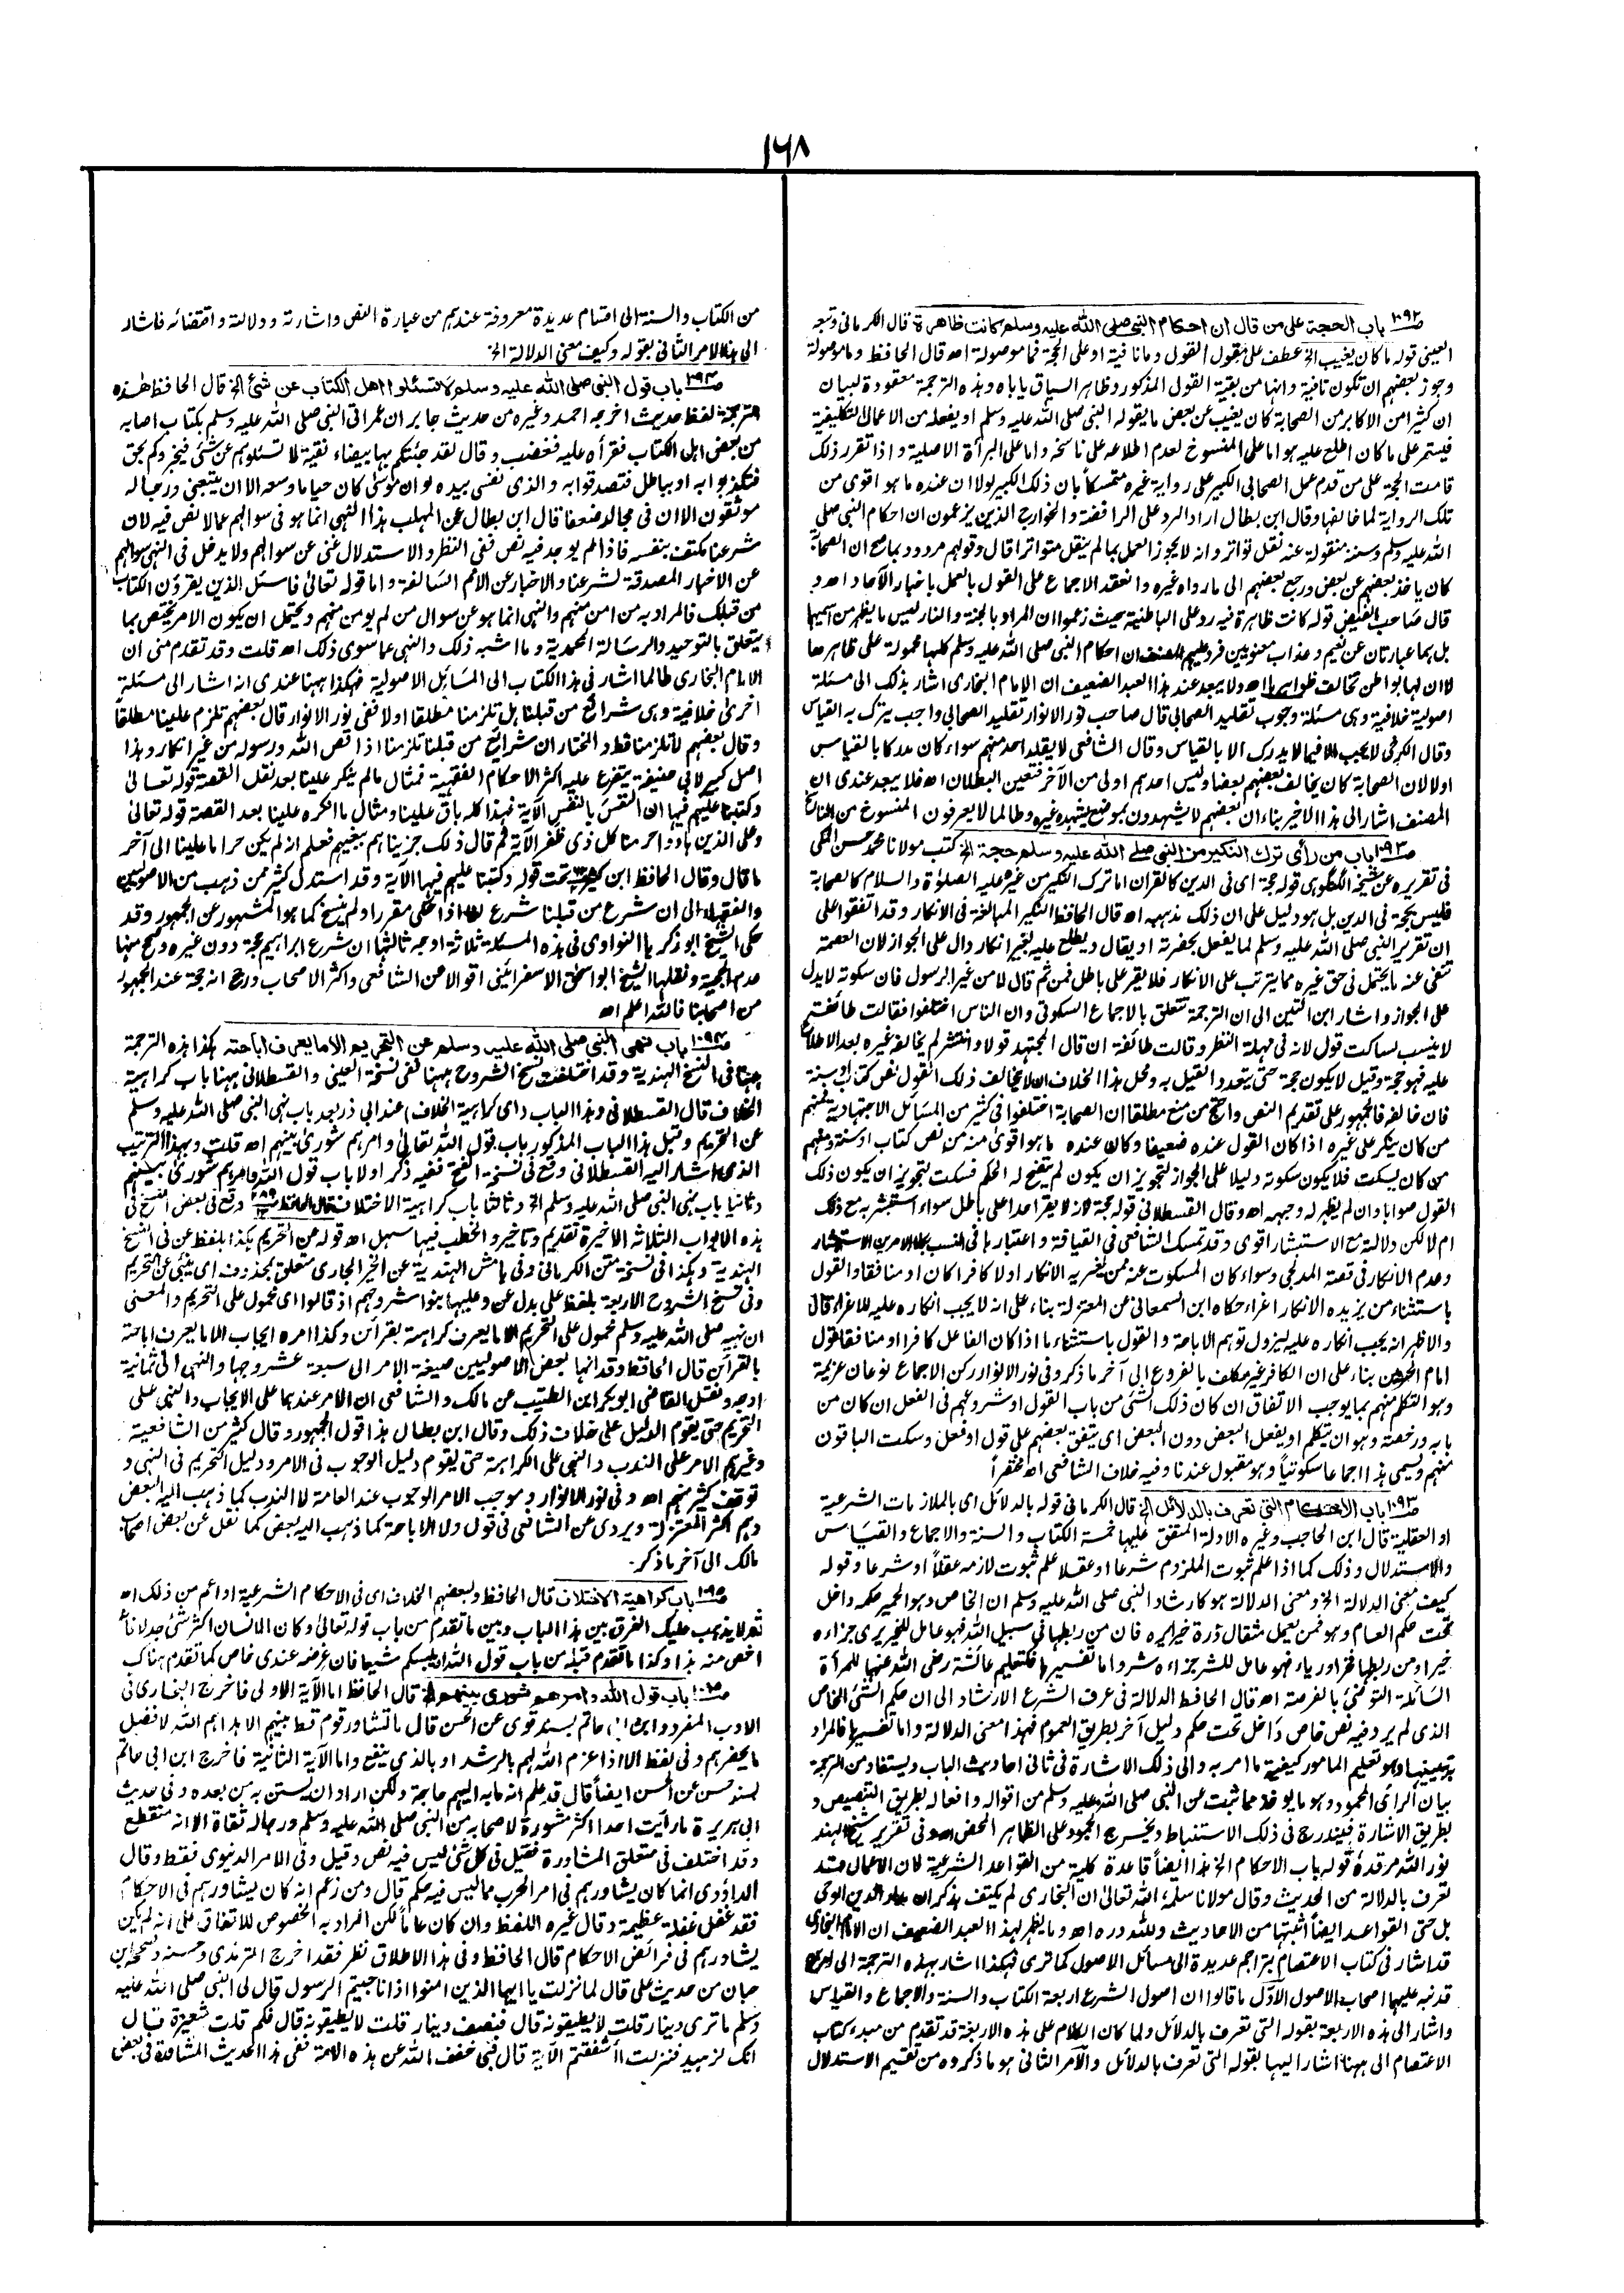 ١٦٨
ص١٠٩٢ باب الحجة على من قال ان احكام النبي صلى الله عليه وسلم كانت ظاهرة قال الكرماني وتبعه
العيني قوله ما كان يغيب الخ عطف على مقول القول وما نافية او على الحجة فما موصولة اه قال الحافظ وما موصولة
وجوز بعضهم ان تكون نافية وانها من بقية القول المذكور وظاهر السياق ياباه وهذه الترجمة معقودة لبيان
ان كثيرا من الاكابر من الصحابة كان يغيب عن بعض ما يقوله النبي صلى الله عليه وسلم او يفعله من الاعمال التكليفية
فيستمر على ما كان اطلع عليه هو اما على المنسوخ لعدم اطلاعه على ناسخه واما على البرأة الاصلية واذا تقرر ذلك
قامت الحجة على من قدم عمل الصحابي الكبير على رواية غيره متمسكاً بان ذلك الكبير لولا ان عنده ما هو اقوى من
تلك الرواية لما خالفها وقال ابن بطال اراد الرد على الرافضة والخوارج الذين يزعمون ان احكام النبي صلى
الله عليه وسلم وسننه منقولة عنه نقل تواتر وانه لا يجوز العمل بما لم ينقل متواترا قال وقولهم مردود بما صح ان الصحابة
كان ياخذ بعضهم عن بعض ورجع بعضهم الى ما رواه غيره وانعقد الاجماع على القول بالعمل باخبار الآحاد اه و
قال صاحب الفيض قوله كانت ظاهرة فيه رد على الباطنية حيث زعموا ان المراد بالجنة والنار ليس ما يظهر من اسميها
بل هما عبارتان عن نعيم وعذاب معنويين فرد عليهم المصنف ان احكام النبي صلى الله عليه وسلم كلها محمولة على ظاهرها
لا ان لها بواطن تخالف ظواهرها اه ولا يبعد عند هذا العبد الضعيف ان الامام البخاري اشار بذلك الى مسئلة
اصولية خلافية وهي مسئلة وجوب تقليد الصحابي قال صاحب نور الانوار تقليد الصحابي واجب يترك به القياس
وقال الكرخي لا يجب الا فيما لا يدرك الا بالقياس وقال الشافعي لا يقلد احد منهم سواء كان مدركا بالقياس
اولا لان الصحابة كان يخالف بعضهم بعضا وليس احدهم اولى من الآخر فتعين البطلان اه فلا يبعد عندي ان
المصنف اشار الى هذا الاخير بناء ان بعضهم لا يشهدون بموضع يشهده غيره وطالما لا يعرفون المنسوخ من الناسخ
ص١٠٩٣ باب من رأى ترك النكير من النبي صلى الله عليه وسلم حجة الخ كتب مولانا محمد حسن المكي
في تقريره عن شيخه الگنگوهي قوله حجة اى في الدين كالقران اما ترك النكير من غيره عليه الصلوٰة والسلام كالصحابة
فليس بحجة في الدين بل هو دليل على ان ذلك مذهبه اه قال الحافظ النكير المبالغة في الانكار وقد اتفقوا على
ان تقرير النبي صلى الله عليه وسلم لما يفعل بحضرته او يقال ويطلع عليه بغير انكار دال على الجواز لان العصمة
تنفى عنه ما يحتمل في حق غيره مما يترتب على الانكار فلا يقر على باطل فمن ثم قال لا من غير الرسول فان سكوته لا يدل
على الجواز واشار ابن التين الى ان الترجمة تتعلق بالاجماع السكوتي وان الناس اختلفوا فقالت طائفة
لا ينسب لساكت قول لانه في مهلة النظر وقالت طائفة ان قال المجتهد قولا وانتشر لم يخالفه غيره بعد الاطلاع
عليه فهو حجة وقيل لا يكون حجة حتى يتعدد القيل به ومحل هذا الخلاف ان لا يخالف ذلك القول نص كتاب او سنة
فان خالفه فالجمهور على تقديم النص واحتج من منع مطلقا ان الصحابة اختلفوا في كثير من المسائل الاجتهادية فمنهم
من كان ينكر على غيره اذا كان القول عنده ضعيفا وكان عنده ما هو اقوىٰ منه من نص كتاب او سنة ومنهم
من كان يسكت فلا يكون سكوته دليلا على الجواز لتجويز ان يكون لم يتضح له الحكم فسكت لتجويز ان يكون ذلك
القول صوابا وان لم يظهر له وجهه اه وقال القسطلاني قوله حجة لانه لا يقر احدا على باطل سواء استبشر به مع ذلك
ام لا لكن دلالته مع الاستبشار اقوى وقد تمسك الشافعي في القيافة واعتبارها في النسب بكلا الامرين الاستبشار
وعدم الانكار في قصة المدلجي وسواء كان المسكوت عنه ممن يغريه الانكار اولا كافرا كان او منافقا والقول
باستثناء من يزيده الانكار اغراء حكاه ابن السمعاني عن المعتزلة بناء على انه لا يجب انكاره عليه للاغراء قال
والاظهر انه يجب انكاره عليه ليزول توهم الاباحة والقول باستثناء ما اذا كان الفاعل كافرا او منافقا قول
امام الحرمين بناء على ان الكافر غير مكلف بالفروع الى آخر ما ذكر وفي نور الانوار ركن الاجماع نوعان عزيمة
وهو التكلم منهم بما يوجب الاتفاق ان كان ذلك الشئ من باب القول او شروعهم في الفعل ان كان من
بابه ورخصة وهو ان يتكلم او يفعل البعض دون البعض اى يتفق بعضهم على قول او فعل وسكت الباقون
منهم ويسمى هذا اجماعا سكوتياً وهو مقبول عندنا وفيه خلاف الشافعي اه مختصراً
ص١٠٩٣ باب الأحكام التي تعرف بالدلائل الخ قال الكرماني قوله بالدلائل اى بالملازمات الشرعية
او العقلية قال ابن الحاجب وغيره الادلة المتفق عليها خمسة الكتاب والسنة والاجماع والقياس
والاستدلال وذلك كما اذا علم ثبوت الملزوم شرعا او عقلا علم ثبوت لازمه عقلاً او شرعا وقوله
كيف معنى الدلالة الخ ومعنى الدلالة هو كارشاد النبي صلى الله عليه وسلم ان الخاص وهو الحمير حكمه داخل
تحت حكم العام وهو فمن يعمل مثقال ذرة خيرا يره فان من ربطها في سبيل الله فهو عامل للخير يرى جزاءه
خيرا ومن ربطها فخرا ورياء فهو عامل للشر جزاءه شر واما تفسيرها فكتعليم عائشة رضى الله عنها للمرأة
السائلة التوضئ بالفرصة اه قال الحافظ الدلالة في عرف الشرع الارشاد الى ان حكم الشئ الخاص
الذي لم يرد فيه نص خاص داخل تحت حكم دليل آخر بطريق العموم فهذا معنى الدلالة واما تفسيرها فالمراد
تبيينها وهو تعليم المامور كيفية ما امر به والى ذلك الاشارة في ثاني احاديث الباب ويستفاد من الترجمة
بيان الرأى المحمود وهو ما يوخذ مما ثبت عن النبي صلى الله عليه وسلم من اقواله وافعاله بطريق التنصيص و
بطريق الاشارة فيندرج في ذلك الاستنباط ويخرج الجمود على الظاهر المحض اه وفي تقرير شيخ الهند
نور الله مرقده قوله باب الاحكام الخ هذا ايضاً قاعدة كلية من القواعد الشرعية لان الاعمال قد
تعرف بالدلالة من الحديث وقال مولانا سلمه الله تعالى ان البخاري لم يكتف بذكر عماد الدين الوحي
بل حتى القواعد ايضاً اثبتها من الاحاديث ولله دره اه وما يظهر لهذا العبد الضعيف ان الامام البخاري
قد اشار في كتاب الاعتصام بتراجم عديدة الى مسائل الاصول كما ترى فهكذا اشار بهذه الترجمة الى امرين
قد نبه عليهما اصحاب الاصول الاوّل ما قالوا ان اصول الشرع اربعة الكتاب والسنة والاجماع والقياس
واشار الى هذه الاربعة بقوله التي تعرف بالدلائل ولما كان الكلام على هذه الاربعة قد تقدم من مبدء كتاب
الاعتصام الى ههنا اشار اليها بقوله التي تعرف بالدلائل والآمر الثاني هو ما ذكروه من تقسيم الاستدلال
من الكتاب والسنة الى اقسام عديدة معروفة عندهم من عبارة النص واشارته ودلالته واقتضائه فاشار
الى هذا الامر الثاني بقوله وكيف معنى الدلالة الخ
ص١٠٩٤ باب قول النبي صلى الله عليه وسلم لا تسئلوا اهل الكتاب عن شئ الخ قال الحافظ هذه
الترجمة لفظ حديث اخرجه احمد وغيره من حديث جابر ان عمر اتى النبي صلى الله عليه وسلم بكتاب اصابه
من بعض اهل الكتاب فقرأه عليه فغضب وقال لقد جئتكم بها بيضاء نقية لا تسئلوهم عن شئ فيخبروكم بحق
فتكذبوا به او بباطل فتصدقوا به والذى نفسي بيده لو ان موسىٰ كان حيا ما وسعه الا ان يتبعني ورجاله
موثقون الا ان في مجالد ضعفا قال ابن بطال عن المهلب هذا النهى انما هو في سوالهم عما لا نص فيه لان
شرعنا مكتف بنفسه فاذا لم يوجد فيه نص ففى النظر والاستدلال غنى عن سوالهم ولا يدخل في النهى سوالهم
عن الاخبار المصدقة لشرعنا والاخبار عن الامم السالفة واما قوله تعالىٰ فاسئل الذين يقرؤن الكتاب
من قبلك فالمراد به من امن منهم والنهى انما هو عن سوال من لم يومن منهم ويحتمل ان يكون الامر يختص بما
يتعلق بالتوحيد والرسالة المحمدية وما اشبه ذلك والنهى عما سوى ذلك اه قلت وقد تقدم منى ان
الامام البخاري طالما اشار في هذا الكتاب الى المسائل الاصولية فهكذا ههنا عندي انه اشار الى مسئلة
اخرىٰ خلافية وهى شرائع من قبلنا هل تلزمنا مطلقا اولا ففى نور الانوار قال بعضهم تلزم علينا مطلقاً
وقال بعضهم لا تلزمنا قط والمختار ان شرائع من قبلنا تلزمنا اذا قص الله ورسوله من غير انكار وهذا
اصل كبير لابي حنيفة يتفرع عليه اكثر الاحكام الفقهية فمثال ما لم ينكر علينا بعد نقل القصة قوله تعالى
وكتبنا عليهم فيها ان النفس بالنفس الآية فهذا كله باق علينا ومثال ما انكره علينا بعد القصة قوله تعالى
وعلى الذين هادوا حرمنا كل ذى ظفر الآية ثم قال ذلك جزيناهم ببغيهم فعلم انه لم يكن حراما علينا الى آخر
ما قال وقال الحافظ ابن كثير تحت قوله وكتبنا عليهم فيها الآية وقد استدل كثير ممن ذهب من الاصوليين
والفقهاء الى ان شرع من قبلنا شرع لنا اذا حكى مقررا ولم ينسخ كما هو المشهور عن الجمهور وقد
حكى الشيخ ابو زكريا النواوى في هذه المسئلة ثلاثة اوجه ثالثها ان شرع ابراهيم حجة دون غيره وصحح منها
عدم الحجية ونقلها الشيخ ابو اسحٰق الاسفرائينى اقوالا من الشافعي واكثر الاصحاب ورجح انه حجة عند الجمهور
من اصحابنا فالله اعلم اه
ص١٠٩٤ باب نهى النبي صلى الله عليه وسلم عن التحريم الا ما يعرف اباحته هكذا هذه الترجمة
ههنا في النسخ الهندية وقد اختلفت نسخ الشروح ههنا ففى نسخة العيني والقسطلاني ههنا باب كراهية
الخلاف قال القسطلاني وهذا الباب (اى كراهية الخلاف) عند ابي ذر بعد باب نهى النبي صلى الله عليه وسلم
عن التحريم وقبل هذا الباب المذكور باب قول الله تعالىٰ وامرهم شورىٰ بينهم اه قلت وبهذا الترتيب
الذى اشار اليه القسطلاني وقع في نسخة الفتح ففيه ذكر اولا باب قول الله وامرهم شورىٰ بينهم
وثانيا باب نهى النبي صلى الله عليه وسلم الخ وثالثا باب كراهية الاختلاف قال الحافظ وقع في بعض النسخ في
هذه الابواب الثلاثة الاخيرة تقديم وتاخير والخطب فيها سهل اه قوله عن التحريم هكذا بلفظ عن في النسخ
الهندية وهكذا في نسخة متن الكرماني وفي هامش الهندية عن الخير الجاري متعلق بمحذوف اى ينهى عن التحريم
وفي نسخ الشروح الاربعة بلفظ على بدل عن وعليها بنوا شروحهم اذ قالوا اى محمول على التحريم والمعنى
ان نهيه صلى الله عليه وسلم محمول على التحريم الا ما يعرف كراهته بقرائن وكذا امره ايجاب الا ما يعرف اباحته
بالقرائن قال الحافظ وقد انهى بعض الاصوليين صيغة الامر الى سبعة عشر وجها والنهى الى ثمانية
اوجه ونقل القاضى ابوبكر ابن الطيب عن مالك والشافعي ان الامر عندهما على الايجاب والنهى على
التحريم حتى يقوم الدليل على خلاف ذلك وقال ابن بطال هذا قول الجمهور وقال كثير من الشافعية
وغيرهم الامر على الندب والنهى على الكراهة حتى يقوم دليل الوجوب في الامر ودليل التحريم في النهى و
توقف كثير منهم اه وفي نور الانوار وموجب الامر الوجوب عند العامة لا الندب كما ذهب اليه البعض
وهم اكثر المعتزلة ويروى عن الشافعي في قول ولا الاباحة كما ذهب اليه بعض كما نقل عن بعض اصحاب
مالك الى آخر ما ذكر۔
ص١٠٩٥ باب كراهية الاختلاف قال الحافظ ولبعضهم الخلاف اى في الاحكام الشرعية او اعم من ذلك اه
ثم لا يذهب عليك الفرق بين هذا الباب وبين ما تقدم من باب قوله تعالىٰ وكان الانسان اكثر شئ جدلا فانه
اخص منه هذا وكذا ما تقدم قبله من باب قول الله او يلبسكم شيعا فان غرضه عندى خاص كما تقدم هناك
ص١٠٩٥ باب قول الله وامرهم شورى بينهم الخ قال الحافظ اما الآية الاولى فاخرج البخاري في
الادب المفرد وابن ابي حاتم بسند قوى عن الحسن قال ما تشاور قوم قط بينهم الا هداهم الله لافضل
ما يحضرهم وفي لفظ الا اذا عزم الله لهم بالرشد او بالذى ينفع واما الآية الثانية فاخرج ابن ابي حاتم
بسند حسن عن الحسن ايضاً قال قد علم انه ما به اليهم حاجة ولكن اراد ان يستن به من بعده وفي حديث
ابي هريرة ما رأيت احدا اكثر مشورة لاصحابه من النبي صلى الله عليه وسلم ورجاله ثقاة الا انه منقطع
وقد اختلف في متعلق المشاورة فقيل في كل شئ ليس فيه نص وقيل وفي الامر الدنيوى فقط وقال
الداؤدى انما كان يشاورهم في امر الحرب مما ليس فيه حكم قال ومن زعم انه كان يشاورهم في الاحكام
فقد غفل غفلة عظيمة وقال غيره اللفظ وان كان عاماً لكن المراد به الخصوص للاتفاق على انه لم يكن
يشاورهم في فرائض الاحكام قال الحافظ وفي هذا الاطلاق نظر فقد اخرج الترمذى وحسنه وصححه ابن
حبان من حديث على قال لما نزلت يا ايها الذين امنوا اذا ناجيتم الرسول قال لى النبي صلى الله عليه
وسلم ما ترى دينار قلت لا يطيقونه قال فنصف دينار قلت لا يطيقونه قال فكم قلت شعيرة قال
انك لزهيد فنزلت أاشفقتم الآية قال فبي خفف الله عن هذه الامة ففى هذا الحديث المشاورة في بعض